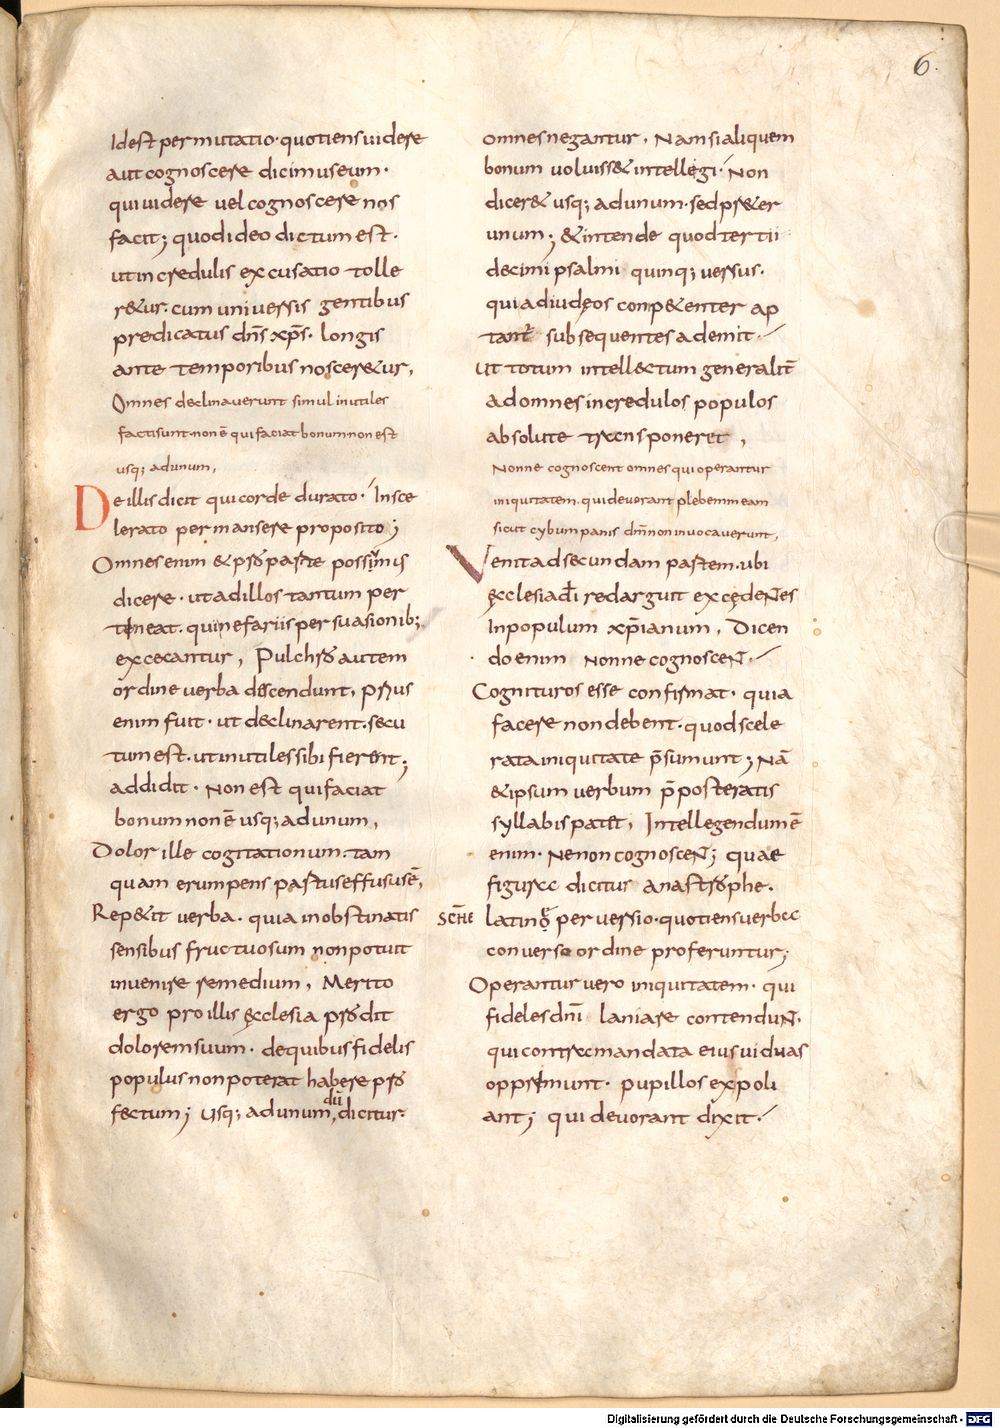 6.
Id est permutatio· quotiens uidere
aut cognoscere dicimus eum·
qui uidere uel cognoscere nos
facit; quod ideo dictum est·
ut incredulis excusatio tolle
r&ur· cum uniuersis gentibus
predicatus dn̄s xp̄s· longis
ante temporibus noscer&ur,
Omnes declinauerunt simul inutiles
facti sunt· non ē qui faciat bonum non est
usq; ad unum,
De illis dicit qui corde durato· In sce
lerato permansere proposito;
Omnes enim & pro parte possumus
dicere· ut ad illos tantum per
teneat· qui nefariis persuasionib;
excecantur, Pulchro autem
ordine uerba descendunt, prius
enim fuit· ut declinarent· secu
tum est· ut inutiles sibi fierent;
addidit· Non est qui faciat
bonum non ē usq; ad unum,
Dolor ille cogitationum· tam
quam erumpens partus effusus ē,
Rep&it uerba· quia in obstinatis
sensibus fructuosum non potuit
inuenire remedium, Merito
ergo pro illis ęcclesia prodit
dolorem suum· de quibus fidelis
populus non poterat habere pro
fectum; Usq; ad unum, dū dicitur
omnes negantur, Nam si aliquem
bonum uoluiss& intellegi· Non
dicer& usq; ad unum· sed pr&er
unum; & intende quod tertii
decimi psalmi quinq; uersus·
qui ad iudęos conp&enter ap
tant̄ subsequentes ademit·
Ut totum intellectum generalit̄
ad omnes incredulos populos
absolute transponeret,
Nonne cognoscent omnes qui operantur
iniquitatem· qui deuorant plebem meam
sicut cybum panis dn̄m non inuocauerunt,
Venit ad secundam partem· ubi
ęcclesia dī redarguit excędeNtes
In populum xp̄ianum, Dicen
do enim Nonne cognosceNt·
Cognituros esse confirmat· quia
facere non debent· quod scele
rata iniquitate p̄sumunt; Nā
& ipsum uerbum p̄posteratis
syllabis patet, Intellegendum ē
enim· Ne non cognosceNt; quae
figura dicitur anastrophe·
latinę peruersio· quotiens uerba
conuerso ordine proferuntur;
Operantur uero iniquitatem· qui
fideles dn̄i laniare contenduNt·
qui contra mandata eius uiduas
opprimunt· pupillos expoli
ant; qui deuorant dixit·
Digitalisierung gefördert durch die Deutsche Forschungsgemeinschaft - DFG